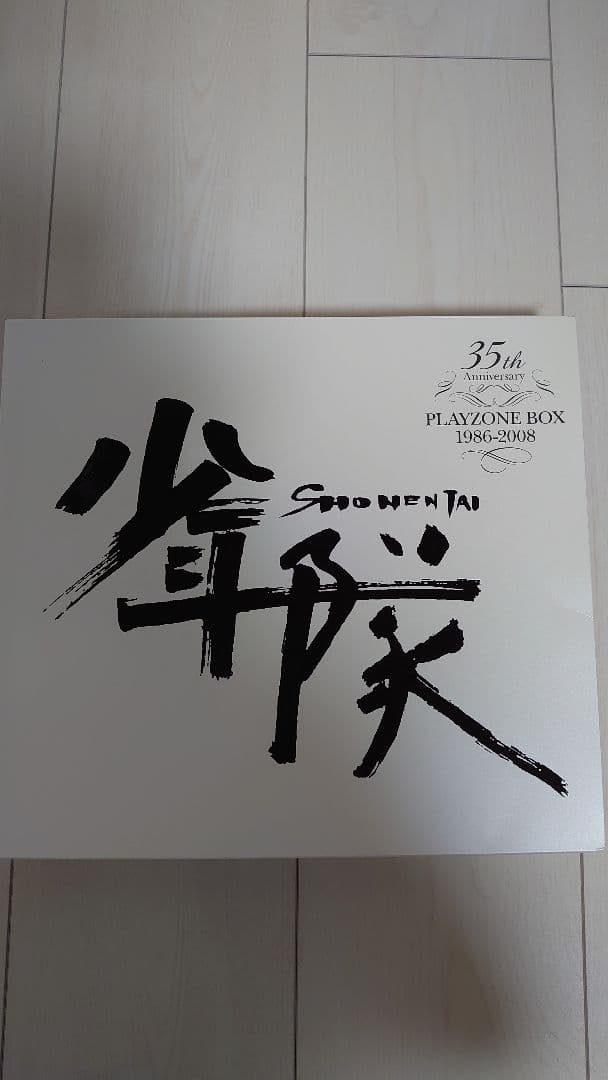 35th
Anniversary
PLAYZONE BOX
1986-2008
SHONENTAI
少年隊